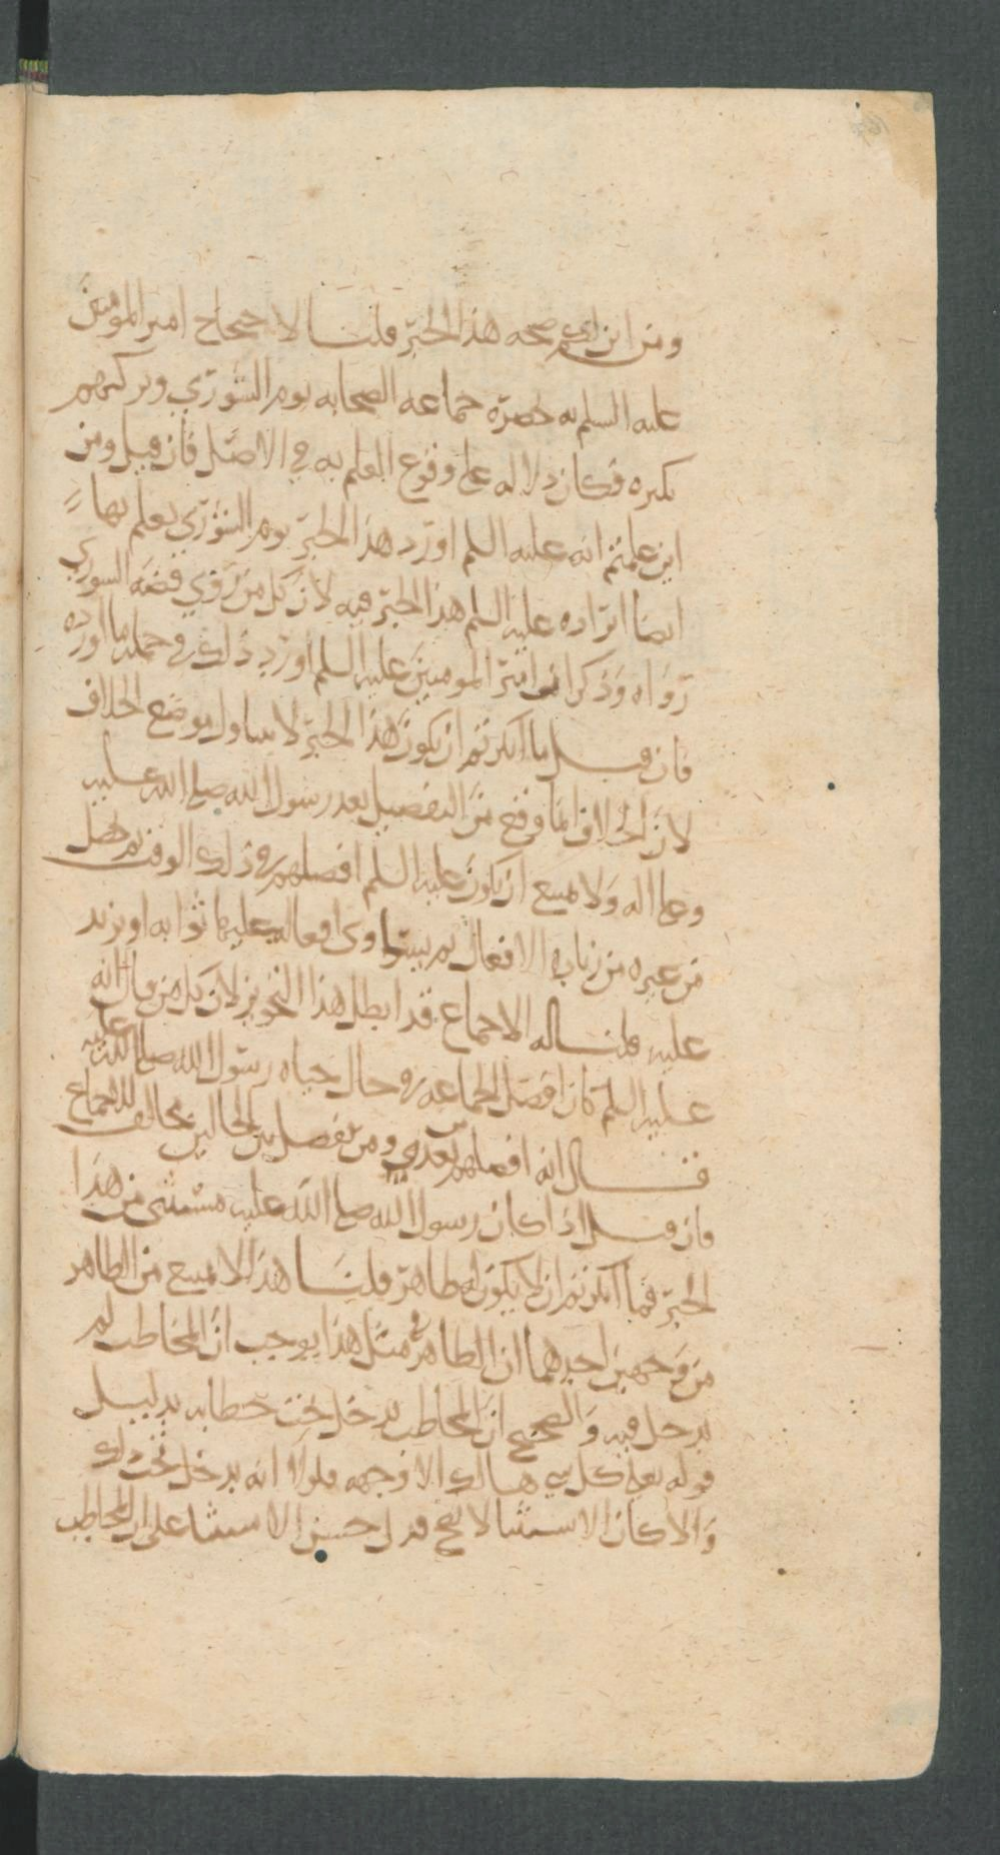 ومن اين لكم صحه هذا الخبر قلنا لاحتجاج امير المومنين
عليه السلم به بحضرة جماعه الصحابه يوم الشورى وتركهم
نكيره فكان دلاله على وقوع العلم به في الاصل فان قيل ومن
اين علمتم انه عليه السلم اورد هذا الخبر يوم الشورى يعلم بها
ايضا ايراده عليه السلم هذا الخبر فيه لان كل من روى قصه الشورى
رواه وذكر ان امير المومنين عليه السلم اورد ذلك في جمله ما اورده
فان قيل ما انكرتم ان يكون هذا الخبر لا يتناول موضع الخلاف
لان الخلاف انما وقع من التفضيل بعد رسول الله صلى الله عليه
وعلى اله ولا يمنع ان يكون عليه السلم افضلهم في ذلك الوقت ثم يحصل
من غيره من الافعال ثم يستاوى افعاله عليها ثوابه او يزيد
عليه قلنا له الاجماع قد ابطل هذا التجويز لان كل من قال انه
عليه السلم كان افضل الجماعه في حال حياه رسول الله صلى الله عليه
قال انه افضلهم بعده ومن يفصل بين الحالين مخالف للاجماع
فان قيل اذا كان رسول الله صلى الله عليه مستثنى من هذا
الخبر فما انكرتم ان لا يكون له ظاهر قلنا هذا لا يمنع من الظاهر
من وجهين احدهما ان الظاهر في مثل هذا يوجب ان المخاطب لم
يدخل فيه والصحيح ان المخاطب يدخل تحت خطابه بدليل
قوله تعلى كل شي هالك الا وجهه فلولا انه يدخل تحت ذلك
والا كان الاستثنا لا يصح فدل حسن الاستثنا على ان المخاطب